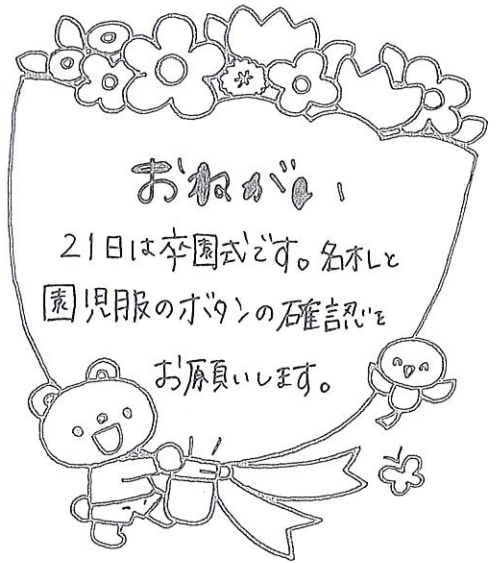 おねがい
21日は卒園式です。名札と
園児服のボタンの確認を
お願いします。